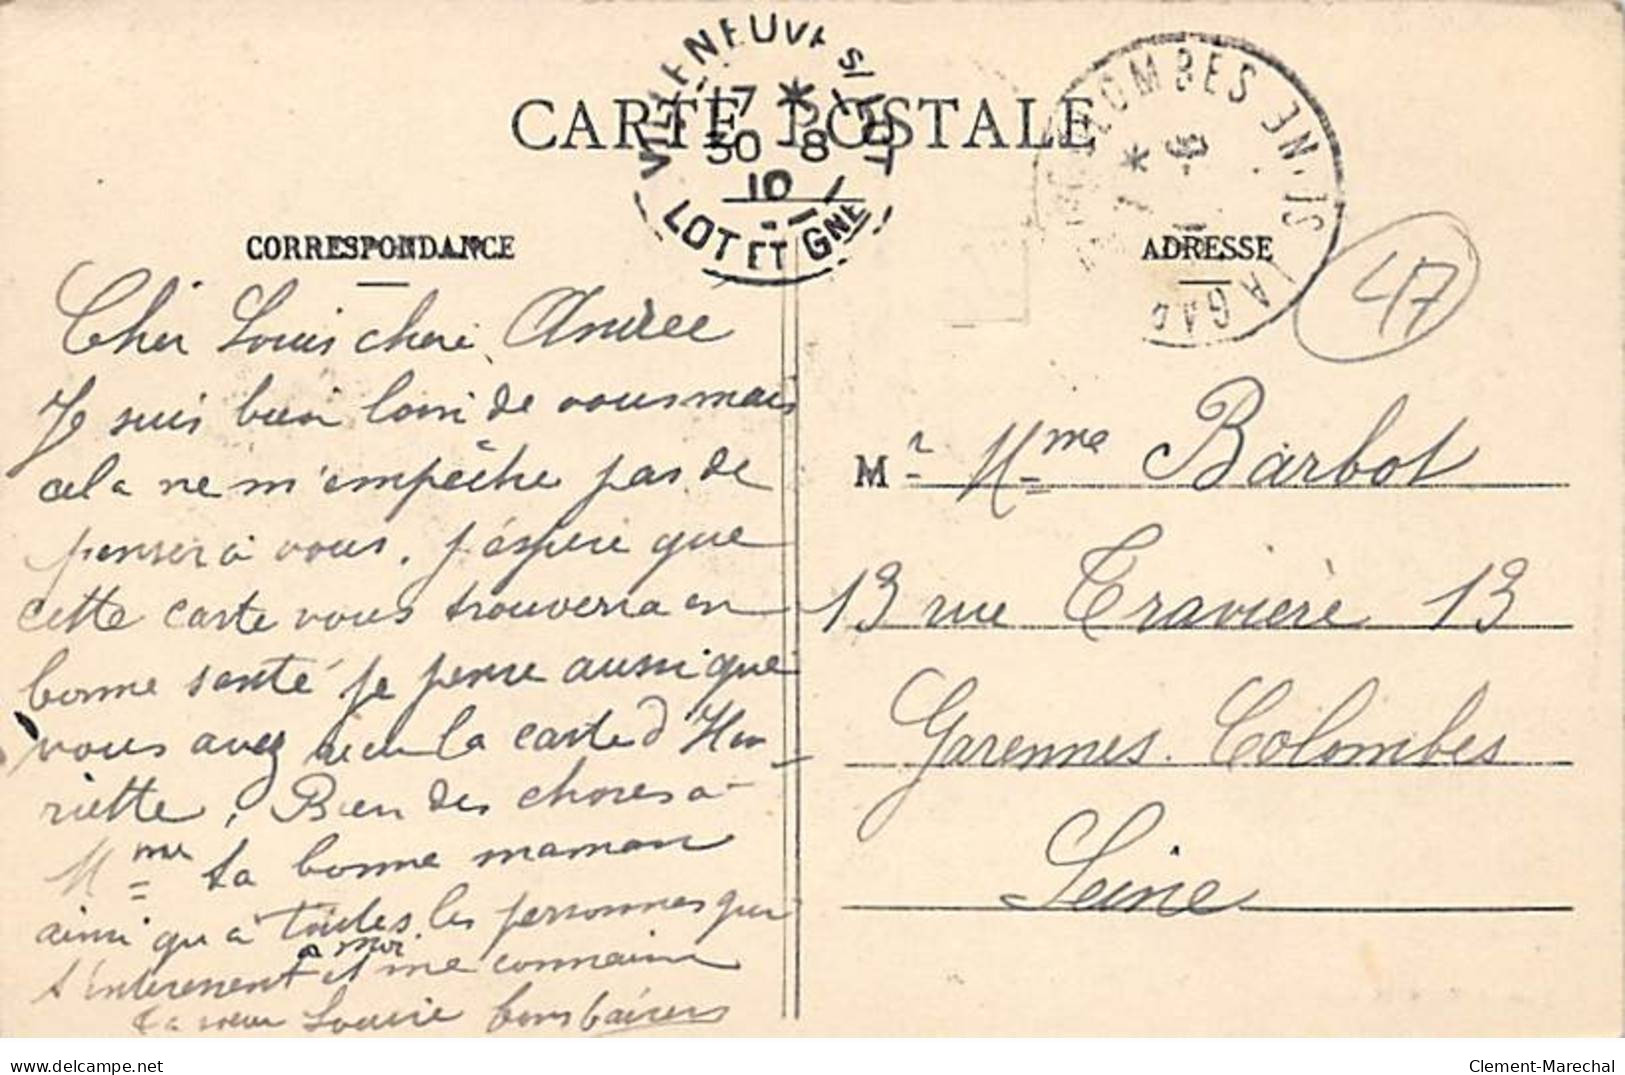 CARTE POSTALE
VILLENEUVE S/ LOT
17 *
30 8
10
LOT ET GNE
COLOMBES
LA GAR
CORRESPONDANCE
ADRESSE
47
Cher Louis chere Andree
Je suis bien loin de vous mais
cela ne m'empêche pas de
penser à vous. J'éspere que
cette carte vous trouverra en
bonne santé je pense aussi que
vous avez recu la carte d'Hen-
riette, Bien des choses a
Mme ta bonne maman
ainsi qu'à toutes les personnes qui
s'interessent a moi et me connaisse
ta soeur Louise bons baisers
Mr Mme Barbot
13 rue Travière 13
Garennes. Colombes
Seine
www.delcampe.net
Clement-Marechal